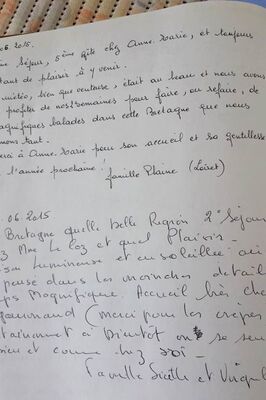 06. 2015.
Séjour, 5ème gîte chez Anne-Marie, et toujours
tant de plaisir à y venir.
météo, bien que venteuse, était au beau et nous avons
profiter de nos 2 semaines pour faire, ou refaire, de
magnifiques balades dans cette Bretagne que nous
mons tant.
erci à Anne-Marie pour son accueil et sa gentillesse
l'année prochaine!
famille Plaine (Loiret)
.06.2015.
Bretagne quelle belle Région 2° Séjour
Mme Le Coz et quel Plaisir
Lumineuse et ensoleillée
pensé dans les moindres détail
ps Magnifique. Accueil très cha
gourmand (merci pour les crêpes
tainement à Bientôt on se sen
bien et comme chez soi
Famille